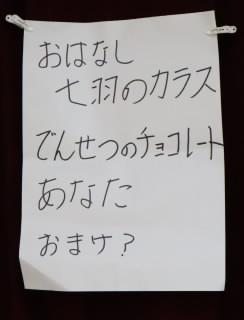 おはなし
七羽のカラス
でんせつのチョコレート
あなた
おまけ？